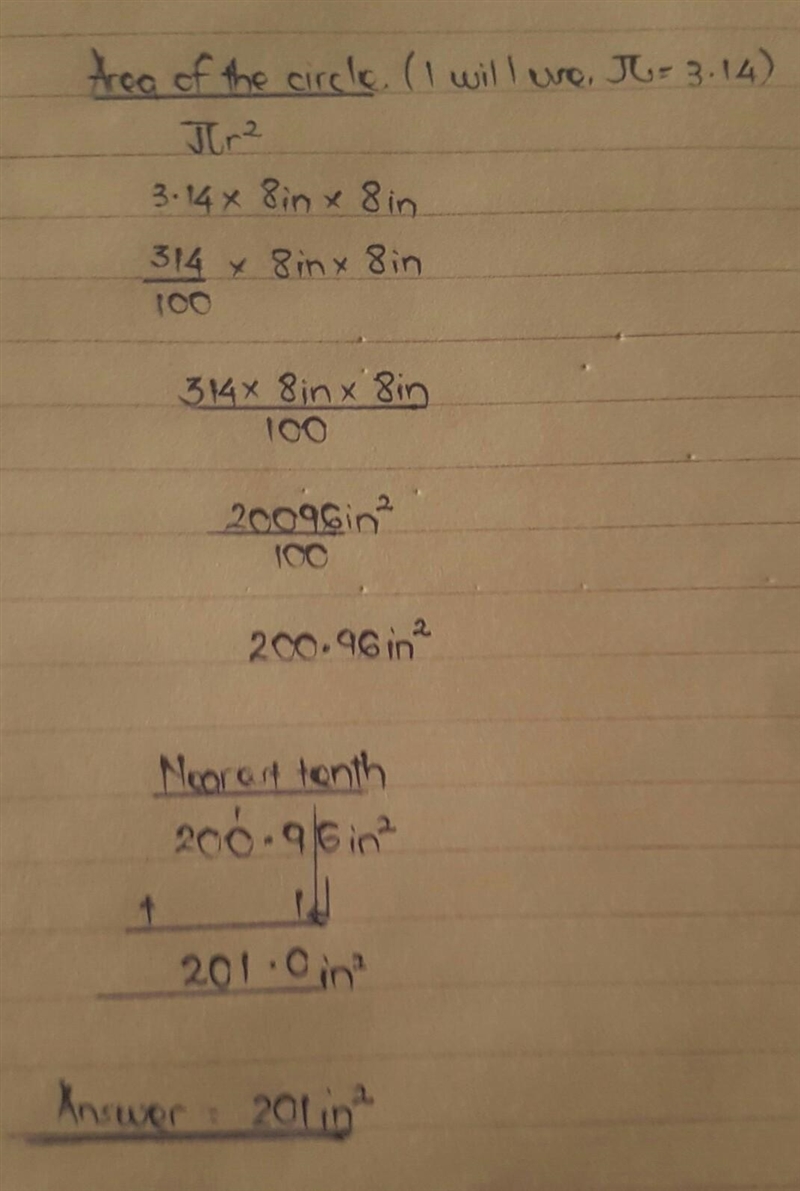 Area of the circle. (I will use, π = 3.14)
πr²
3.14 × 8in × 8in
314
100
× 8in × 8in
314 × 8in × 8in
100
20096in²
100
200.96in²
Nearest tenth
1
200.96in²
+ 1
201.0in²
Answer = 201in²